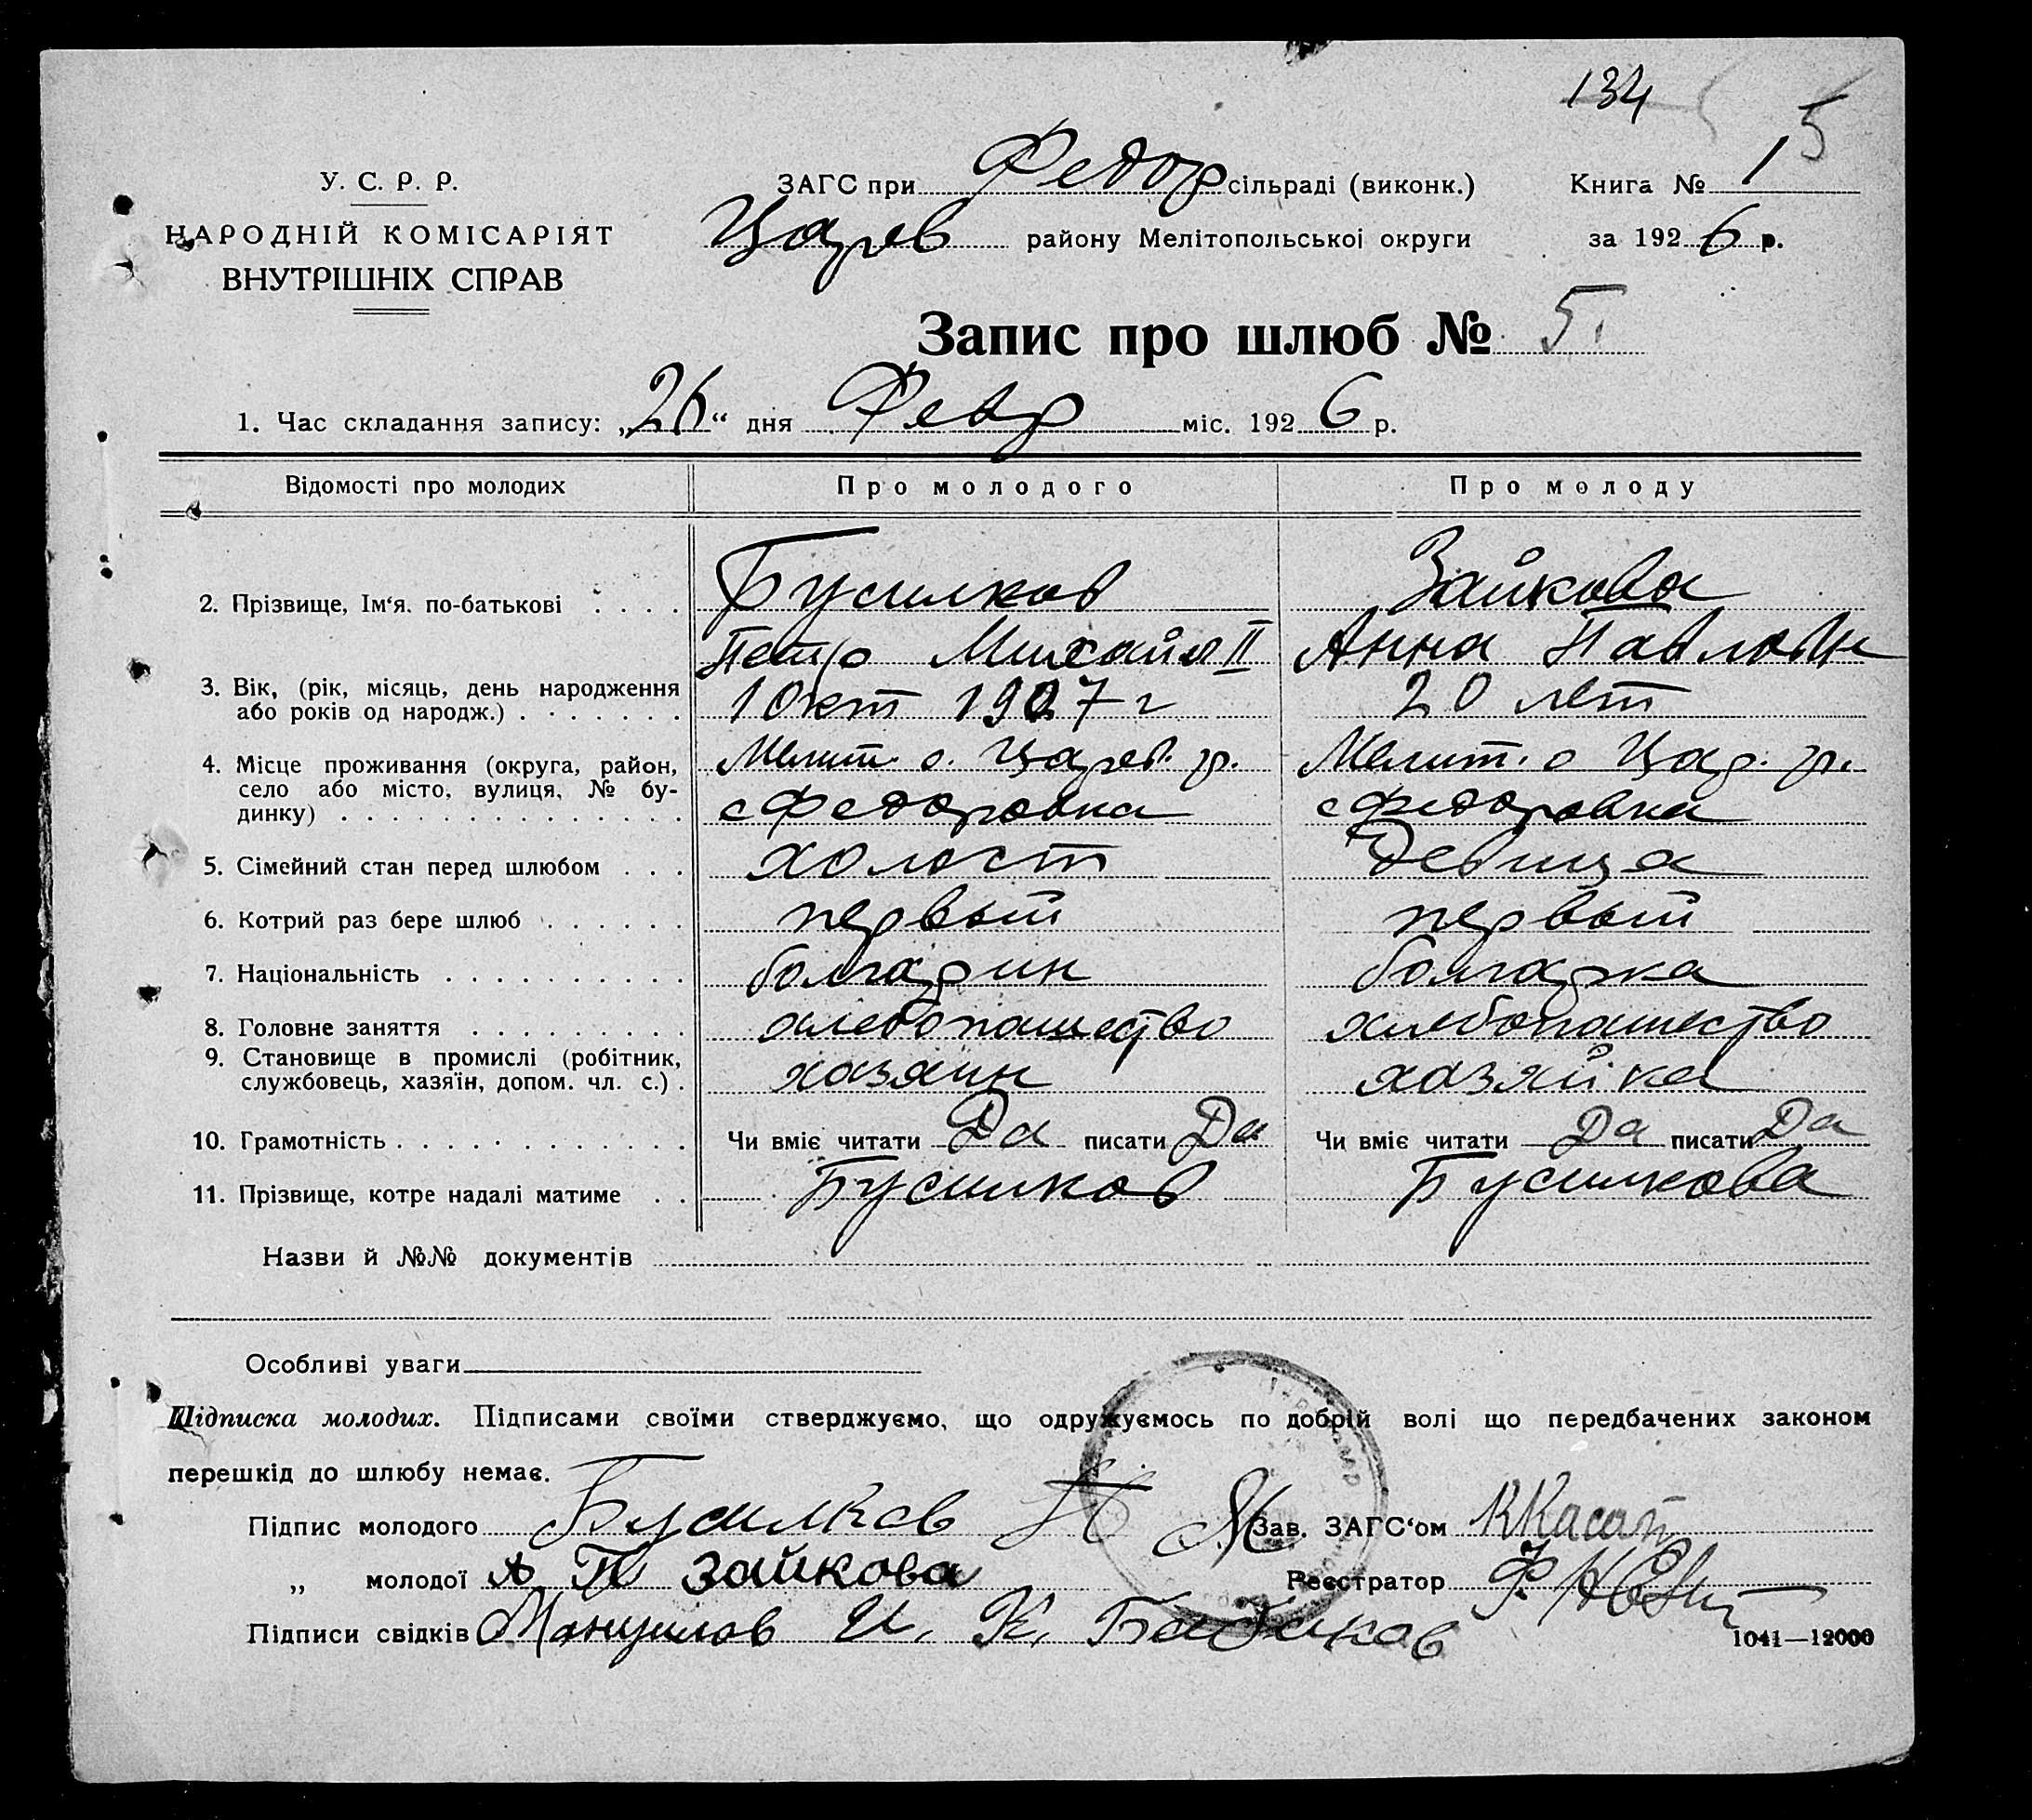 134
У. С. Р. Р.
НАРОДНІЙ КОМІСАРІЯТ
ВНУТРІШНІХ СПРАВ
ЗАГС при Федор сільраді (виконк.)
Книга № 1 5
Царев району Мелітопольської округи
за 1926 р.
Запис про шлюб № 5.
1. Час складання запису: „26“ дня Февр міс. 1926 р.
Відомості про молодих
Про молодого
Про молоду
2. Прізвище, Ім‘я. по-батькові . . . .
Бусилков
Зайкова
Петр Михайл II
Анна Павловн
3. Вік, (рік, місяць, день народження
або років од народж.) . . . . . . .
1 Окт 1907 г
20 лет
4. Місце проживання (округа, район,
село або місто, вулиця, № бу-
динку) . . . . . . . . . . . . . .
Мелит. о. Царев. р.
с Федоровка
Мелит. о Цар. р.
с Федоровка
5. Сімейний стан перед шлюбом . . .
холост
Девица
6. Котрий раз бере шлюб . . . . . .
первый
первый
7. Національність . . . . . . . . . .
болгарин
болгарка
8. Головне заняття . . . . . . . . .
хлебопашество
хлебопашество
9. Становище в промислі (робітник,
службовець, хазяїн, допом. чл. с.) .
хазяин
хазяйка
10. Грамотність . . . . . . . . . . . .
Чи вміє читати Да писати Да
Чи вміє читати Да писати Да
11. Прізвище, котре надалі матиме . .
Бусилков
Бусилкова
Назви й №№ документів
Особливі уваги
Підписка молодих. Підписами своїми стверджуємо, що одружуємось по добрій волі що передбачених законом
перешкід до шлюбу немає.
Підпис молодого Бусилков П М
Зав. ЗАГС‘ом
„ молодої А П Зайкова
Реєстратор
Підписи свідків Мануилов И. К. Бабаков
1041—12000